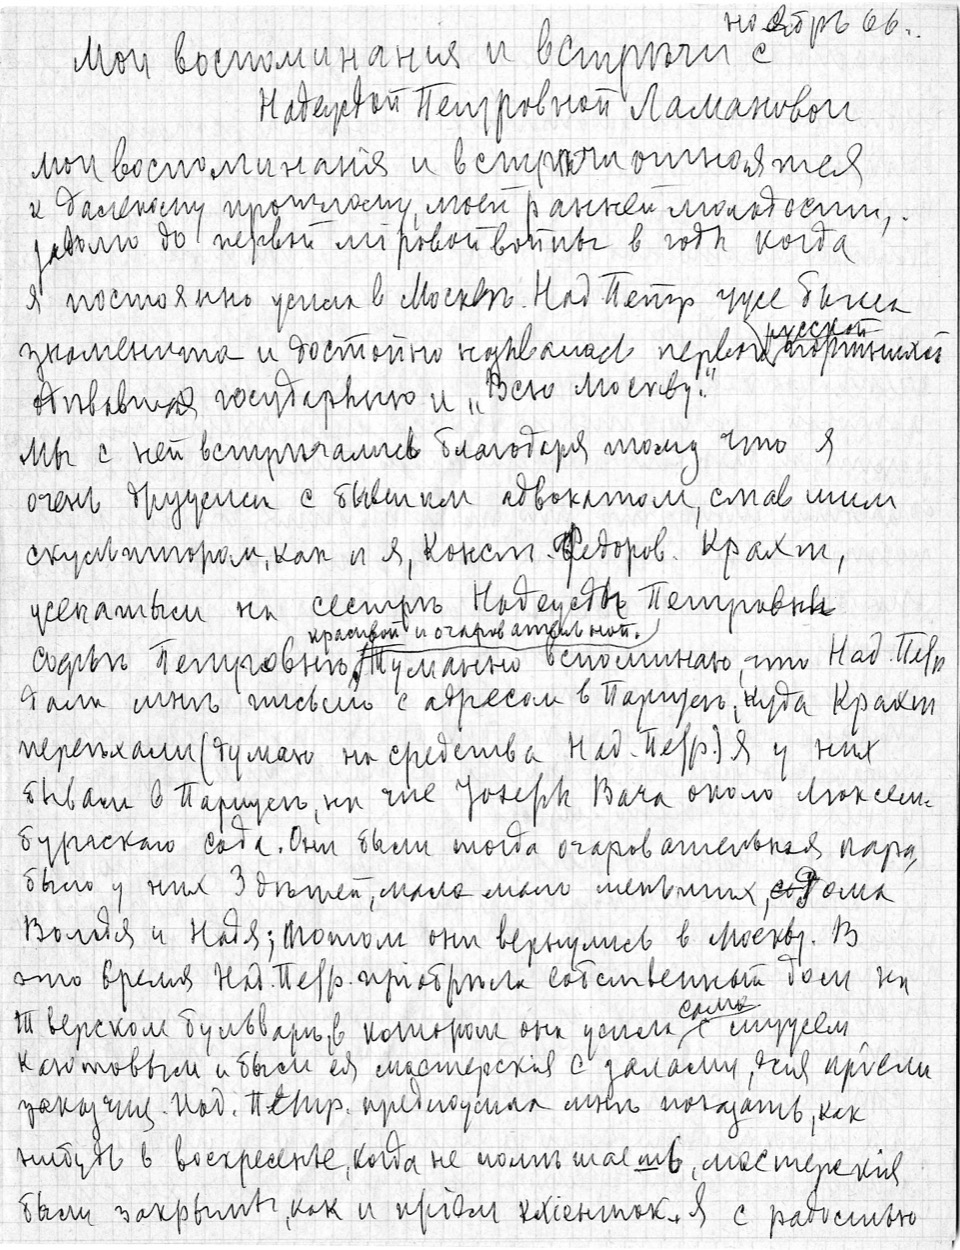 ноябрь 66..
Мои воспоминания и встрѣчи с
Надеждой Петровной Ламановой
Мои воспоминанія и встрѣчи относятся
к далекому прошлому, моей ранней молодости,
задолго до первой міровой войны в годы когда
я постоянно жила в Москвѣ. Над Петр уже была
знаменита и достойно называлась первой русской портнихой
одѣвавшая государыню и „Всю Москву."
Мы с ней встрѣчались благодаря тому что я
очень дружили с бывшим адвокатом, ставшим
скульптором, как и я, Конст. Федоров. Крахт,
женатым на сестрѣ Надежды Петровны
красивой и очаровательной.
Софьѣ Петровнѣ. Туманно вспоминаю, что Над. Петр
дала мнѣ письмо с адресом в Парижѣ, куда Крахт
переѣхали (думаю на средства Над. Петр.) Я у них
бывала в Парижѣ, на rue Joseph Bara около Люксем-
бургскаго сада. Они были тогда очаровательная пара,
было у них 3 дѣтей, мала мала меньших, Тома
Володя и Надя; Потом они вернулись в Москву. В
это время Над. Петр. пріобрѣла собственный дом на
Тверском бульварѣ, в котором она жила сама с мужем
Каютовым и были ея мастерскія с залами, для пріема
заказчиц. Над. Петр. предложила мнѣ показать, как
нибудь в воскресенье, когда не помѣшаеть, мастерскія
были закрыты, как и пріём кліенток. Я с радостью